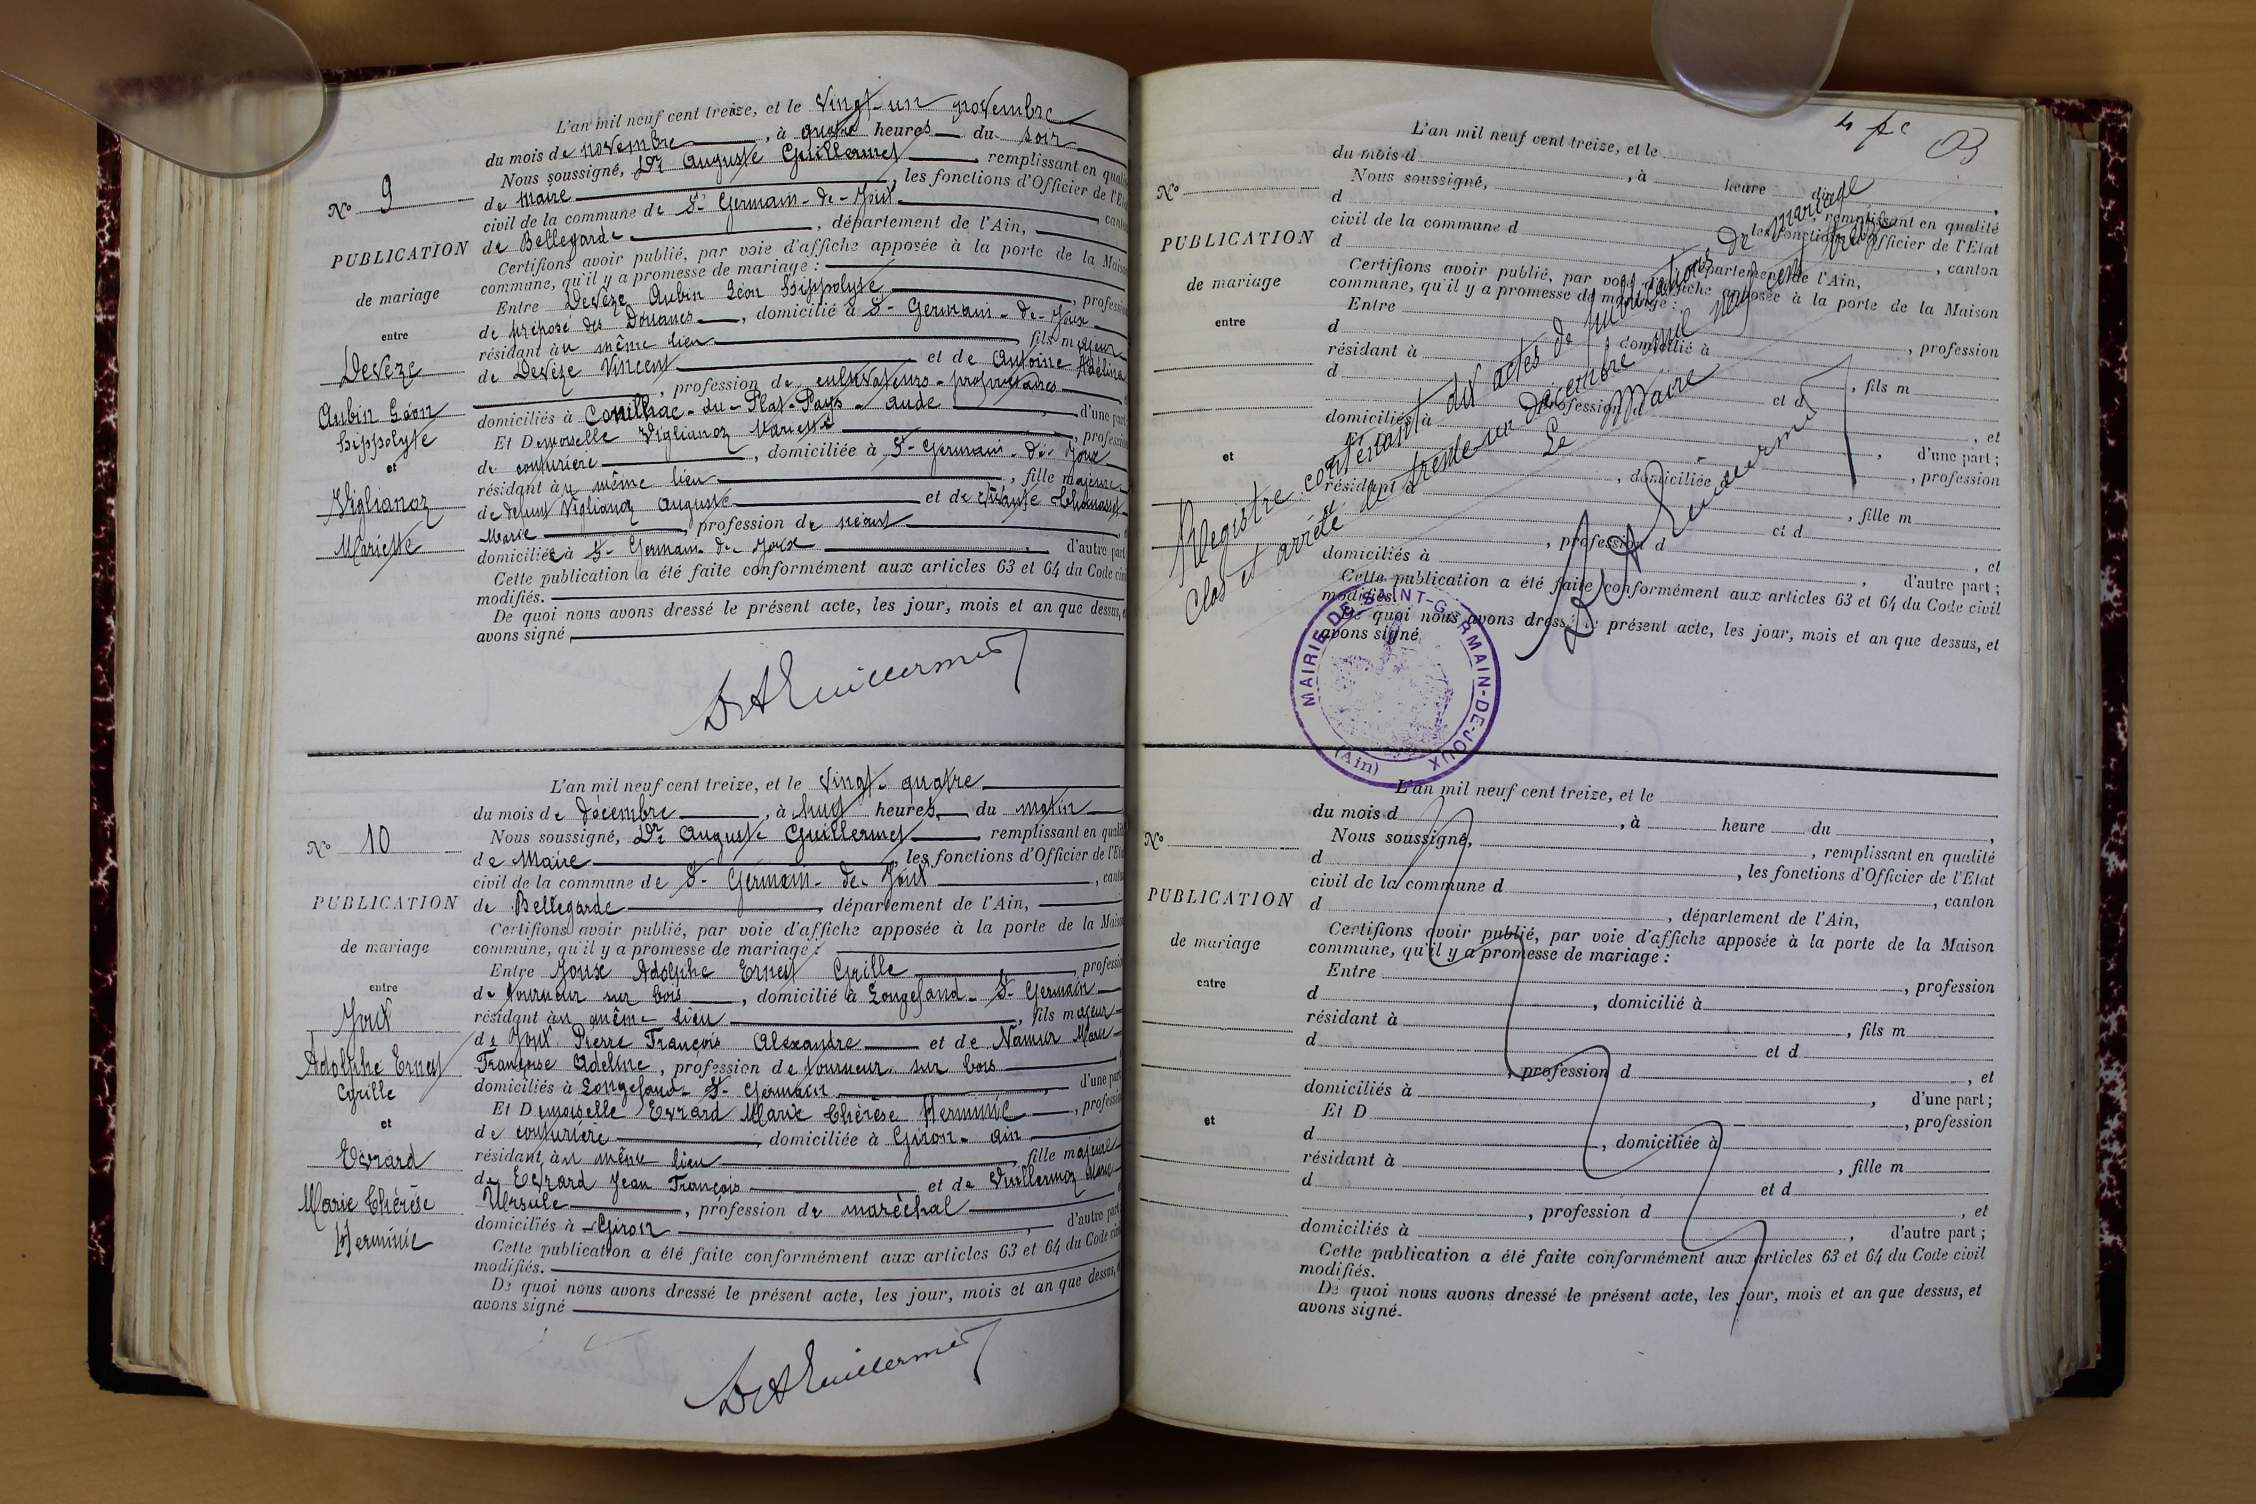 L'an mil neuf cent treize, et le vingt-un novembre
du mois de novembre, à quatre heures du soir
Nous soussigné, Dr Auguste Guillermet remplissant en qualité
de Maire, les fonctions d'Officier de l'Etat
civil de la commune de St-Germain-de-Joux canton
de Bellegarde, département de l'Ain,
Certifions avoir publié, par voie d'affiche apposée à la porte de la Maison
commune, qu'il y a promesse de mariage :
Entre Devèze Aubin Léon Hippolyte, profession
de préposé des Douanes, domicilié à St-Germain-de-Joux
résidant au même lieu fils majeur
de Devèze Vincent et de Antoine Adélina
, profession de cultivateurs-propriétaires
domiciliés à Conilhac-du-Plat-Pays-Aude, d'une part
Et Demoiselle Viglianoz Mariette, profession
de couturière, domiciliée à St-Germain-de-Joux
résidant au même lieu, fille majeure
de defunt Viglianoz Auguste et de vivante
Marie, profession de néant
domiciliée à St-Germain-de-Joux, d'autre part
Cette publication a été faite conformément aux articles 63 et 64 du Code civil
modifiés.
De quoi nous avons dressé le présent acte, les jour, mois et an que dessus, et
avons signé
Dr A Guillermet
N° 9
PUBLICATION
de mariage
entre
Devèze
Aubin Léon
Hippolyte
et
Viglianoz
Mariette
L'an mil neuf cent treize, et le vingt-quatre
du mois de décembre, à huit heures du matin
Nous soussigné, Dr Auguste Guillermet remplissant en qualité
de Maire, les fonctions d'Officier de l'Etat
civil de la commune de St-Germain-de-Joux, canton
de Bellegarde, département de l'Ain,
Certifions avoir publié, par voie d'affiche apposée à la porte de la Maison
commune, qu'il y a promesse de mariage :
Entre Joux Adolphe Ernest Cyrille, profession
de tourneur sur bois, domicilié à Longefand-St-Germain
résidant au même lieu, fils majeur
de Joux Pierre François Alexandre et de Namur Marie
Françoise Adeline, profession de tourneur sur bois
domiciliés à Longefand-St-Germain, d'une part
Et Demoiselle Evrard Marie Thérèse Herminie, profession
de couturière, domiciliée à Giron-Ain
résidant au même lieu, fille majeure
de Evrard Jean François et de Vuillermoz Marie
Ursule, profession de maréchal
domiciliés à Giron, d'autre part
Cette publication a été faite conformément aux articles 63 et 64 du Code civil
modifiés.
De quoi nous avons dressé le présent acte, les jour, mois et an que dessus, et
avons signé
Dr A Guillermet
N° 10
PUBLICATION
de mariage
entre
Joux
Adolphe Ernest
Cyrille
et
Evrard
Marie Thérèse
Herminie
L'an mil neuf cent treize, et le
du mois d, à heure du,
Nous soussigné, remplissant en qualité
d, les fonctions d'Officier de l'Etat
civil de la commune d, canton
d, département de l'Ain,
Certifions avoir publié, par voie d'affiche apposée à la porte de la Maison
commune, qu'il y a promesse de mariage :
Entre, profession
d, domicilié à
résidant à, fils m
d et d
, profession d, et
domiciliés à, d'une part ;
Et D, profession
d, domiciliée à
résidant à, fille m
d et d
, profession d, et
domiciliés à, d'autre part ;
Cette publication a été faite conformément aux articles 63 et 64 du Code civil
modifiés.
De quoi nous avons dressé le présent acte, les jour, mois et an que dessus, et
avons signé
N°
PUBLICATION
de mariage
entre
et
Registre contenant dix actes de publications de mariage
Clos et arrêté le trente un décembre mil neuf cent treize
Le Maire
Dr A Guillermet
MAIRIE DE SAINT-GERMAIN-DE-JOUX
(Ain)
L'an mil neuf cent treize, et le
du mois d, à heure du,
Nous soussigné, remplissant en qualité
d, les fonctions d'Officier de l'Etat
civil de la commune d, canton
d, département de l'Ain,
Certifions avoir publié, par voie d'affiche apposée à la porte de la Maison
commune, qu'il y a promesse de mariage :
Entre, profession
d, domicilié à
résidant à, fils m
d et d
, profession d, et
domiciliés à, d'une part ;
Et D, profession
d, domiciliée à
résidant à, fille m
d et d
, profession d, et
domiciliés à, d'autre part ;
Cette publication a été faite conformément aux articles 63 et 64 du Code civil
modifiés.
De quoi nous avons dressé le présent acte, les jour, mois et an que dessus, et
avons signé.
N°
PUBLICATION
de mariage
entre
et